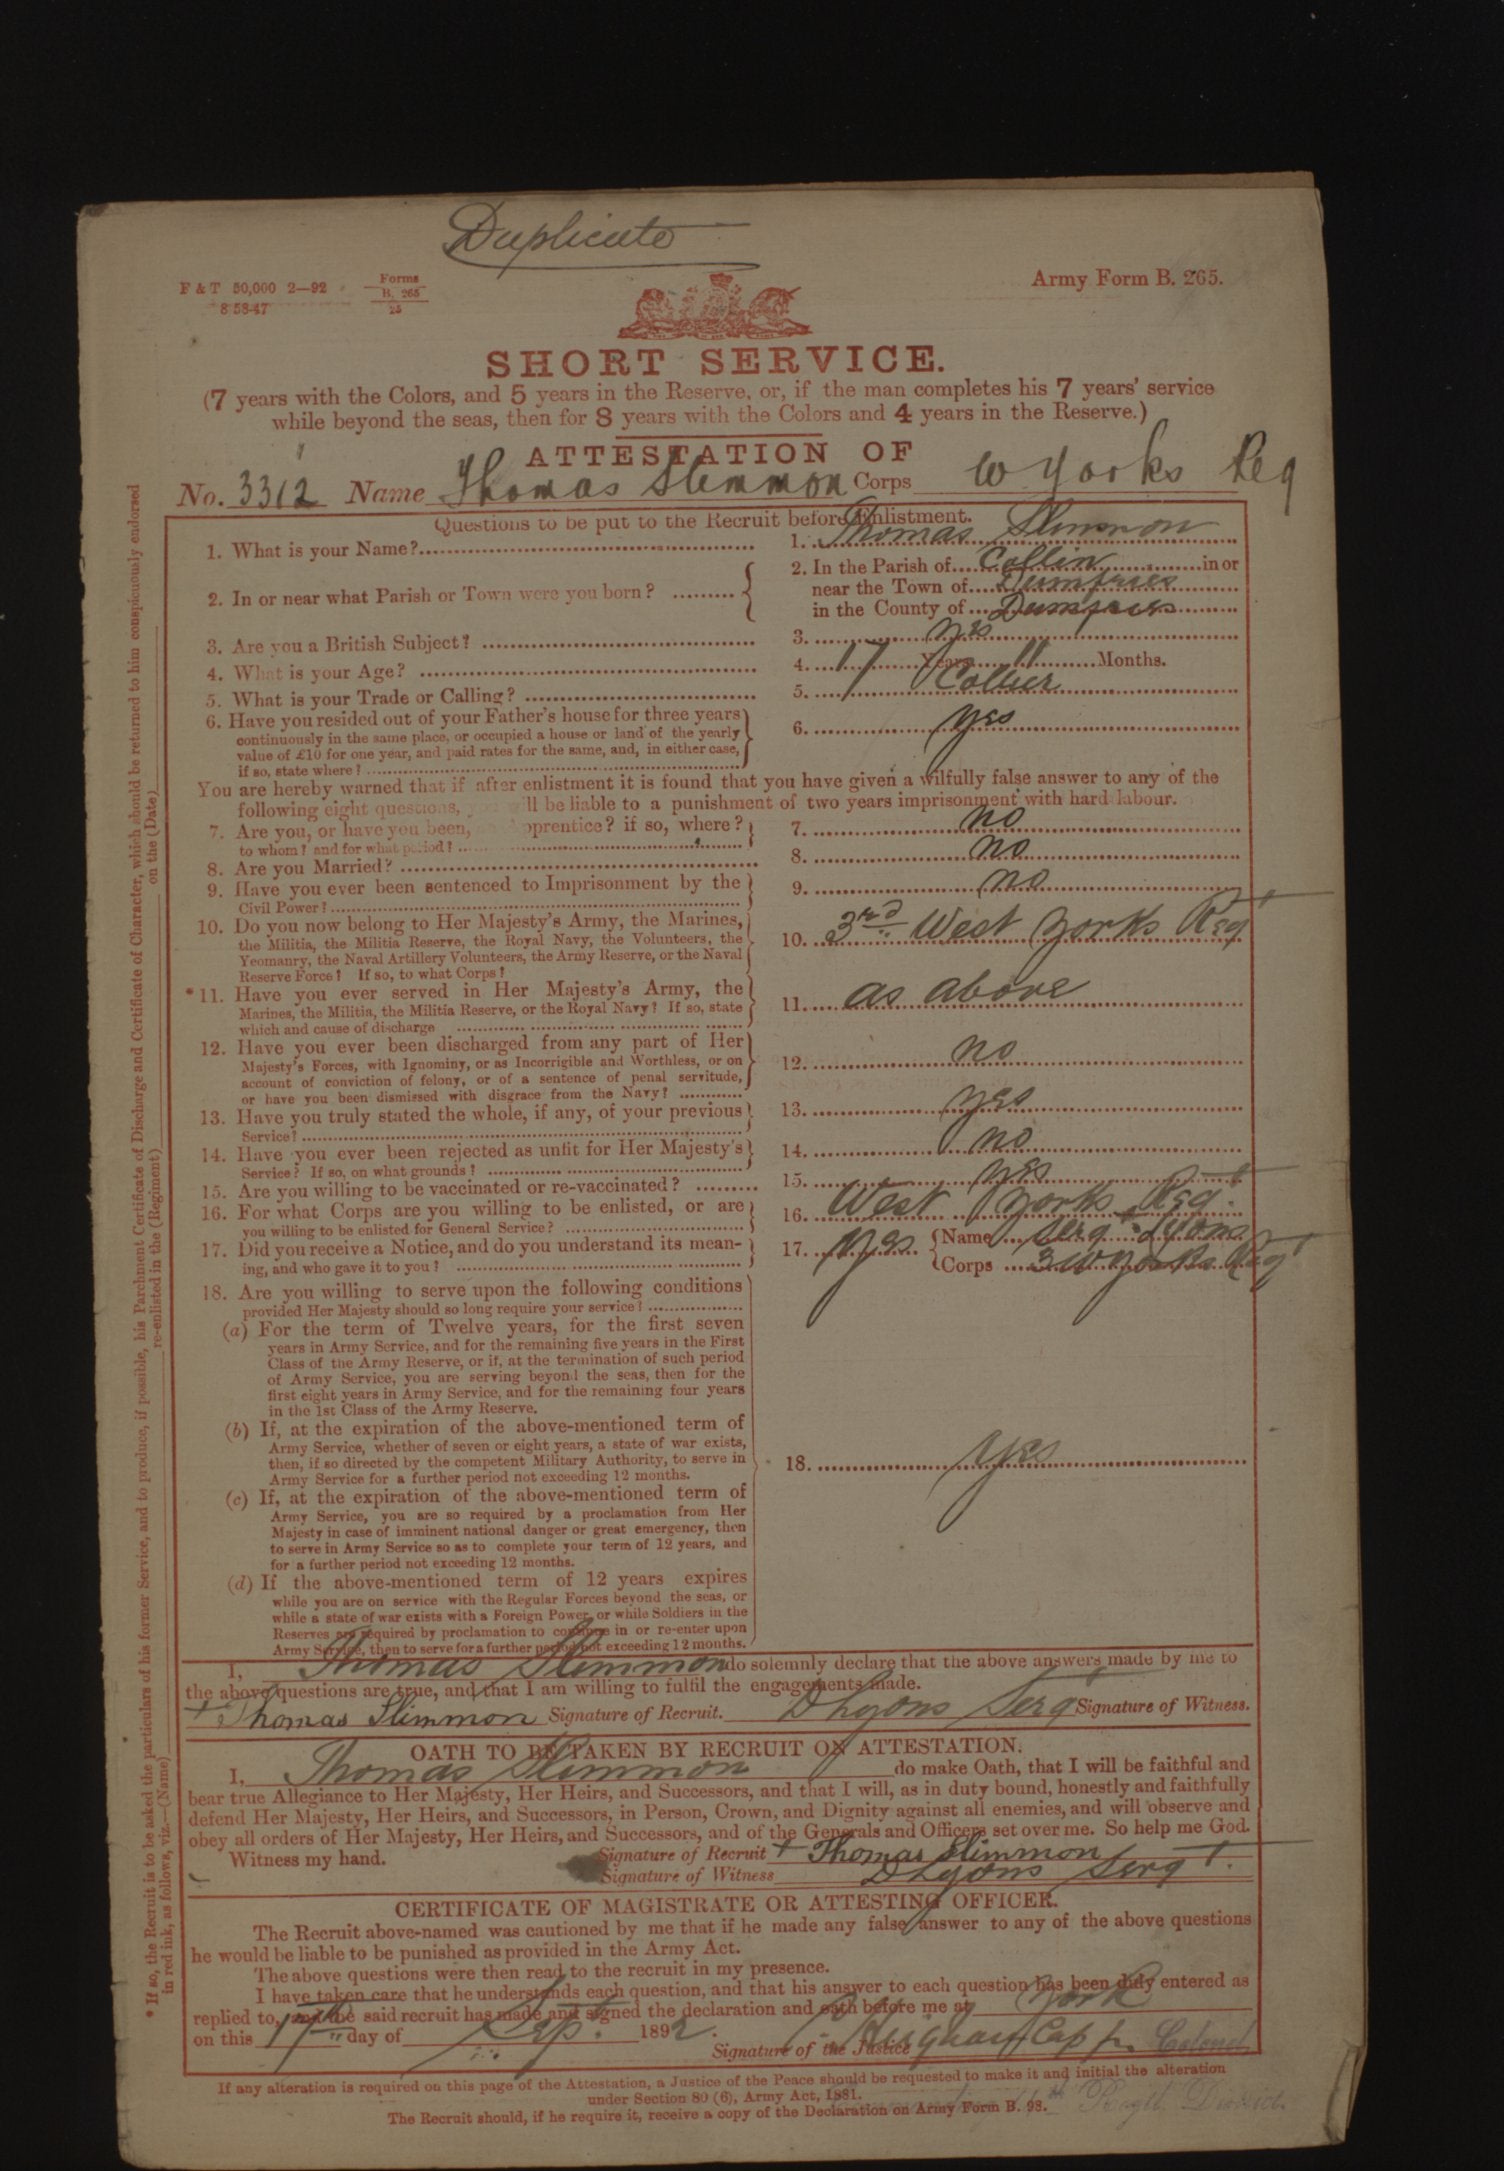 Duplicate
F & T 50,000 2—92 Forms B. 265 25
8 58-47
Army Form B. 265.
SHORT SERVICE.
(7 years with the Colors, and 5 years in the Reserve, or, if the man completes his 7 years' service
while beyond the seas, then for 8 years with the Colors and 4 years in the Reserve.)
ATTESTATION OF
No. 3312 Name Thomas Slimmon Corps W Yorks Reg
Questions to be put to the Recruit before Enlistment.
1. What is your Name? 1. Thomas Slimmon
2. In or near what Parish or Town were you born? 2. In the Parish of Collin in or
near the Town of Dumfries
in the County of Dumfries
3. Are you a British Subject? 3. yes
4. What is your Age? 4. 17 Years 11 Months.
5. What is your Trade or Calling? 5. Collier
6. Have you resided out of your Father's house for three years
continuously in the same place, or occupied a house or land of the yearly
value of £10 for one year, and paid rates for the same, and, in either case,
if so, state where? 6. yes
You are hereby warned that if after enlistment it is found that you have given a wilfully false answer to any of the
following eight questions, you will be liable to a punishment of two years imprisonment with hard labour.
7. Are you, or have you been, an apprentice? if so, where?
to whom? and for what period? 7. no
8. Are you Married? 8. no
9. Have you ever been sentenced to Imprisonment by the
Civil Power? 9. no
10. Do you now belong to Her Majesty's Army, the Marines,
the Militia, the Militia Reserve, the Royal Navy, the Volunteers, the
Yeomanry, the Naval Artillery Volunteers, the Army Reserve, or the Naval
Reserve Force? If so, to what Corps? 10. 3rd West Yorks Regt
*11. Have you ever served in Her Majesty's Army, the
Marines, the Militia, the Militia Reserve, or the Royal Navy? If so, state
which and cause of discharge 11. as above
12. Have you ever been discharged from any part of Her
Majesty's Forces, with Ignominy, or as Incorrigible and Worthless, or on
account of conviction of felony, or of a sentence of penal servitude,
or have you been dismissed with disgrace from the Navy? 12. no
13. Have you truly stated the whole, if any, of your previous
Service? 13. yes
14. Have you ever been rejected as unfit for Her Majesty's
Service? If so, on what grounds? 14. no
15. Are you willing to be vaccinated or re-vaccinated? 15. yes
16. For what Corps are you willing to be enlisted, or are
you willing to be enlisted for General Service? 16. West Yorks Regt.
17. Did you receive a Notice, and do you understand its mean-
ing, and who gave it to you? 17. yes Name Sergt Lyons
Corps 3 W Yorks Regt
18. Are you willing to serve upon the following conditions
provided Her Majesty should so long require your service?
(a) For the term of Twelve years, for the first seven
years in Army Service, and for the remaining five years in the First
Class of the Army Reserve, or if, at the termination of such period
of Army Service, you are serving beyond the seas, then for the
first eight years in Army Service, and for the remaining four years
in the 1st Class of the Army Reserve.
(b) If, at the expiration of the above-mentioned term of
Army Service, whether of seven or eight years, a state of war exists,
then, if so directed by the competent Military Authority, to serve in
Army Service for a further period not exceeding 12 months.
18. yes
(c) If, at the expiration of the above-mentioned term of
Army Service, you are so required by a proclamation from Her
Majesty in case of imminent national danger or great emergency, then
to serve in Army Service so as to complete your term of 12 years, and
for a further period not exceeding 12 months.
(d) If the above-mentioned term of 12 years expires
while you are on service with the Regular Forces beyond the seas, or
while a state of war exists with a Foreign Power, or while Soldiers in the
Reserves are required by proclamation to continue in or re-enter upon
Army Service, then to serve for a further period not exceeding 12 months.
I, Thomas Slimmon do solemnly declare that the above answers made by me to
the above questions are true, and that I am willing to fulfil the engagements made.
+ Thomas Slimmon Signature of Recruit. D Lyons Sergt Signature of Witness.
OATH TO BE TAKEN BY RECRUIT ON ATTESTATION.
I, Thomas Slimmon do make Oath, that I will be faithful and
bear true Allegiance to Her Majesty, Her Heirs, and Successors, and that I will, as in duty bound, honestly and faithfully
defend Her Majesty, Her Heirs, and Successors, in Person, Crown, and Dignity against all enemies, and will observe and
obey all orders of Her Majesty, Her Heirs, and Successors, and of the Generals and Officers set over me. So help me God.
Witness my hand. Signature of Recruit + Thomas Slimmon
Signature of Witness D Lyons Sergt.
CERTIFICATE OF MAGISTRATE OR ATTESTING OFFICER.
The Recruit above-named was cautioned by me that if he made any false answer to any of the above questions
he would be liable to be punished as provided in the Army Act.
The above questions were then read to the recruit in my presence.
I have taken care that he understands each question, and that his answer to each question has been duly entered as
replied to, and the said recruit has made and signed the declaration and oath before me at York
on this 17th day of Sept. 1892.
Signature of the Justice Capt fr. Colonel
If any alteration is required on this page of the Attestation, a Justice of the Peace should be requested to make it and initial the alteration
under Section 80 (6), Army Act, 1881.
The Recruit should, if he require it, receive a copy of the Declaration on Army Form B. 98. Regtl. District.
* If so, the Recruit is to be asked the particulars of his former Service, and to produce, if possible, his Parchment Certificate of Discharge and Certificate of Character, which should be returned to him conspicuously endorsed
in red ink, as follows, viz.—(Name) re-enlisted in the (Regiment) on the (Date)